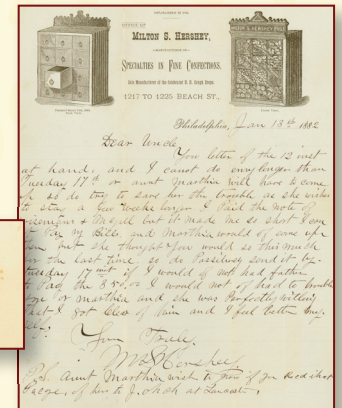 OFFICE OF
MILTON S. HERSHEY,
SPECIALTIES IN FINE CONFECTIONS,
1217 TO 1225 BEACH ST.,
Philadelphia, Jan 13th 1882
Dear Uncle
Your letter of the 12 inst
at hand, and I cannot do any longer than
Tuesday 17th or aunt Marthia will have to come
up so do try to save her the trouble as she wishes
to stay a few weeks longer I paid the note of
but it made me so short I can
my Bills, and Marthia would of come up
but she thought you would so this much
for the last time, so do Possitively send it by
tuesday 17 inst if I would of not had father
to Pay the 350.00 I would not of had to trouble
or marthia and she was Perfectly willing
that I got Clear of him and I feel better
Yours Truly
M. S. Hershey
P.S. Aunt Marthia wish to know if you Recd that
of her to J. at Lancaster.